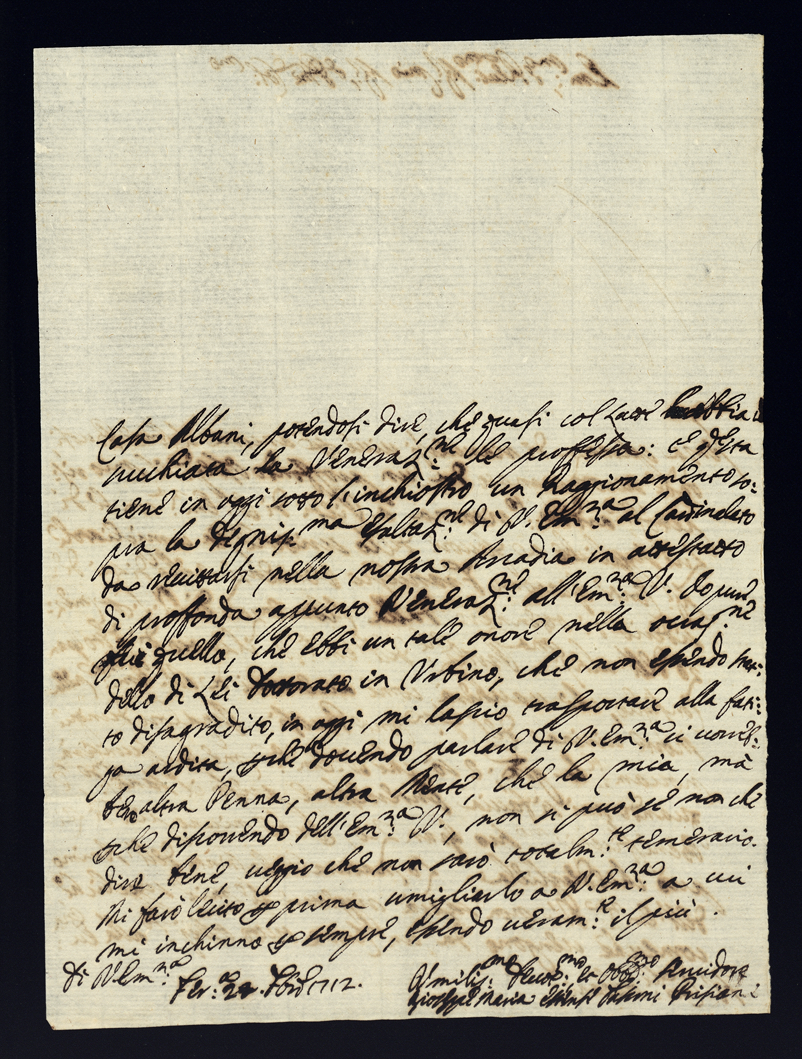 Casa Albani, potendosi dire, che quasi col Latte habbia
succhiata la Veneraz:ne le professa: e questa
tiene in oggi sotto l'inchiostro un Raggionamento so:
pra la degniss:ma Esaltaz:ne di V. Em:za al Cardinalato
da recitarsi nella nostra Arcadia in attestatto
di profonda appunto Veneraz:ne all'Em:za V. dopure
quello, che ebbi un tale onore nella occas:ne
dello di Lei Dottorato in Urbino, che non essendo sta:
to disagradito, in oggi mi lascio trasportare alla fati:
ga ardita, perche dovendo parlare di V. Em:za ci vorreb:
bero altra Penna, altra Mente, che la mia, mà
perche discorrendo dell'Em:za V., non si può se non che
dire bene, veggio che non sarò totalm:te temerario.
Mi farò lecito prima umigliarlo a V. Em:za a cui
mi inchinno per sempre, essendo veram:te il più
di V. Em:za
Fer:a 1712.
Umilis:mo Devot:mo et Obbl:mo Servidore
Gioseppe Maria Estense Tassoni Prisiani